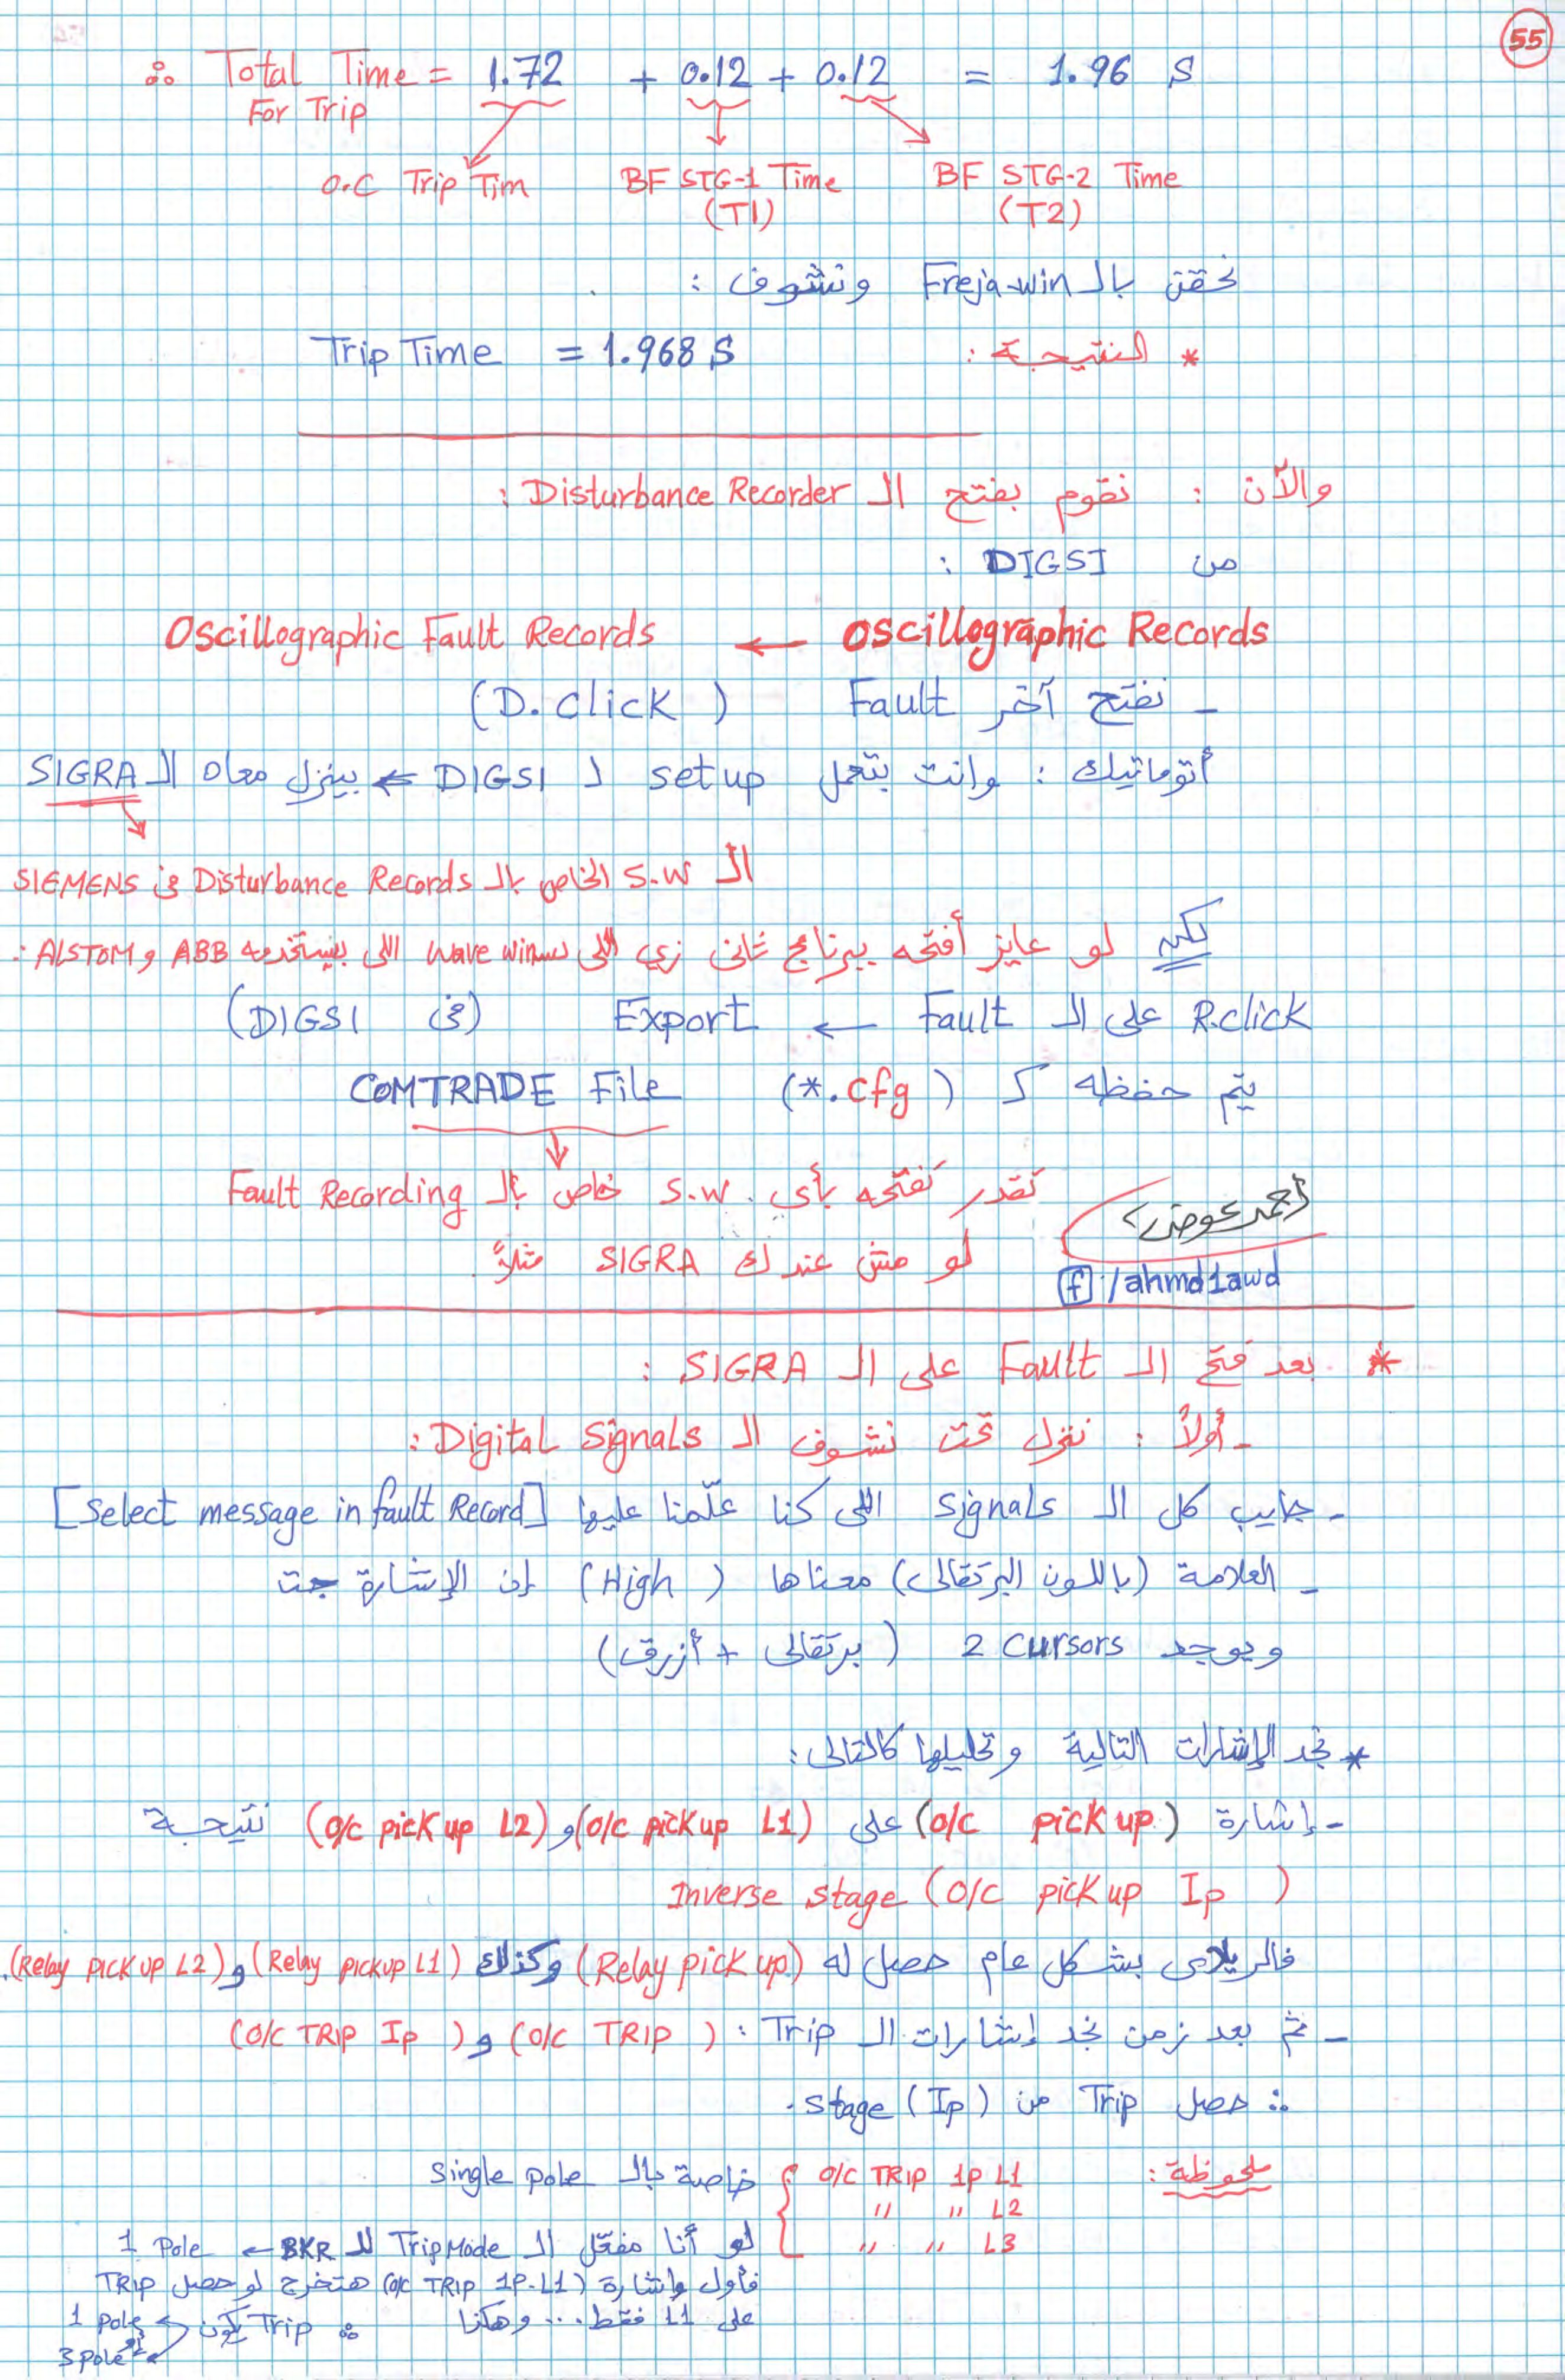 55
∴ Total Time = 1.72 + 0.12 + 0.12 = 1.96 S
For Trip
O.C Trip Tim BF STG-1 Time BF STG-2 Time
(T1) (T2)
نحقن بالـ Freja-win ونشوف :
* النتيجة : Trip Time = 1.968 S
والآن : نقوم بفتح الـ Disturbance Recorder :
من DIGSI :
Oscillographic Records ← Oscillographic Fault Records
- نفتح آخر Fault (D.click)
أتوماتيك : وانت بتعمل setup لـ DIGSI ← بينزل معاه الـ SIGRA
الـ S.W الخاص بالـ Disturbance Records فى SIEMENS
لكن لو عايز أفتحه ببرنامج تانى زي اللى اسمه wave win اللى بيستخدمه ABB و ALSTOM :
R.click على الـ Fault ← Export (فى DIGSI)
يتم حفظه كـ (*.cfg) COMTRADE File
تقدر تفتحه بأى S.W. خاص بالـ Fault Recording
لو مش عندك SIGRA مثلاً
أحمد عوض
f :/ahmd1awd
* بعد فتح الـ Fault على الـ SIGRA :
- أولاً : ننزل تحت نشوف الـ Digital Signals :
- جايب كل الـ signals اللى كنا علّمنا عليها [Select message in fault Record]
- العلامة (باللون البرتقالى) معناها (High) إن الإشارة جت
ويوجد 2 cursors (برتقالى + أزرق)
* نجد الإشارات التالية وتحليلها كالتالى :
- إشارة (O/C pick up) على (O/C pickup L1) و (O/C pick up L2) نتيجة
Inverse stage (O/C pick up Ip)
فالريلاى بشكل عام حصل له (Relay pick up) وكذلك (Relay pickup L1) و (Relay pick up L2).
- ثم بعد زمن نجد إشارات الـ Trip : (O/C TRIP) و (O/C TRIP Ip)
∴ حصل Trip من stage (Ip).
ملحوظة : O/C TRIP 1P L1 خاصة بالـ Single pole
" " L2
" " L3
لو أنا مفعّل الـ Trip Mode للـ BKR ← 1 Pole
فأول إشارة (O/C TRIP 1P-L1) هتخرج لو حصل TRIP
على L1 فقط... وهكذا
∴ Trip يكون 1 pole
3 pole